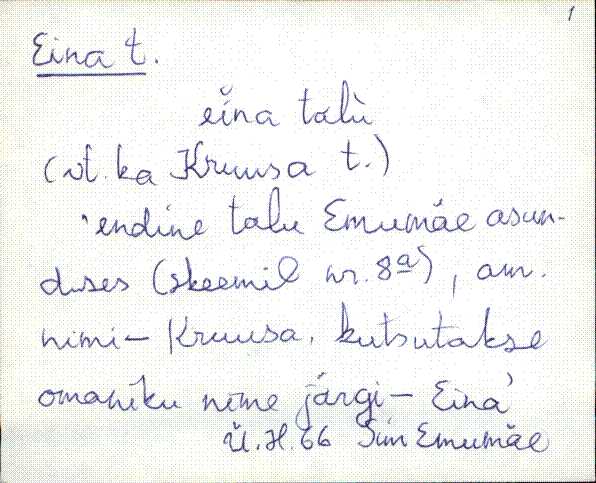 1
Eina t.
eĭna talù
(vt. ka Kruusa t.)
'endine talu Emumäe asun-
duses (skeemil nr. 8a), am.
nimi – Kruusa, kutsutakse
omaniku nime järgi – Eina'
Ü.H. 66 Sim Emumäe